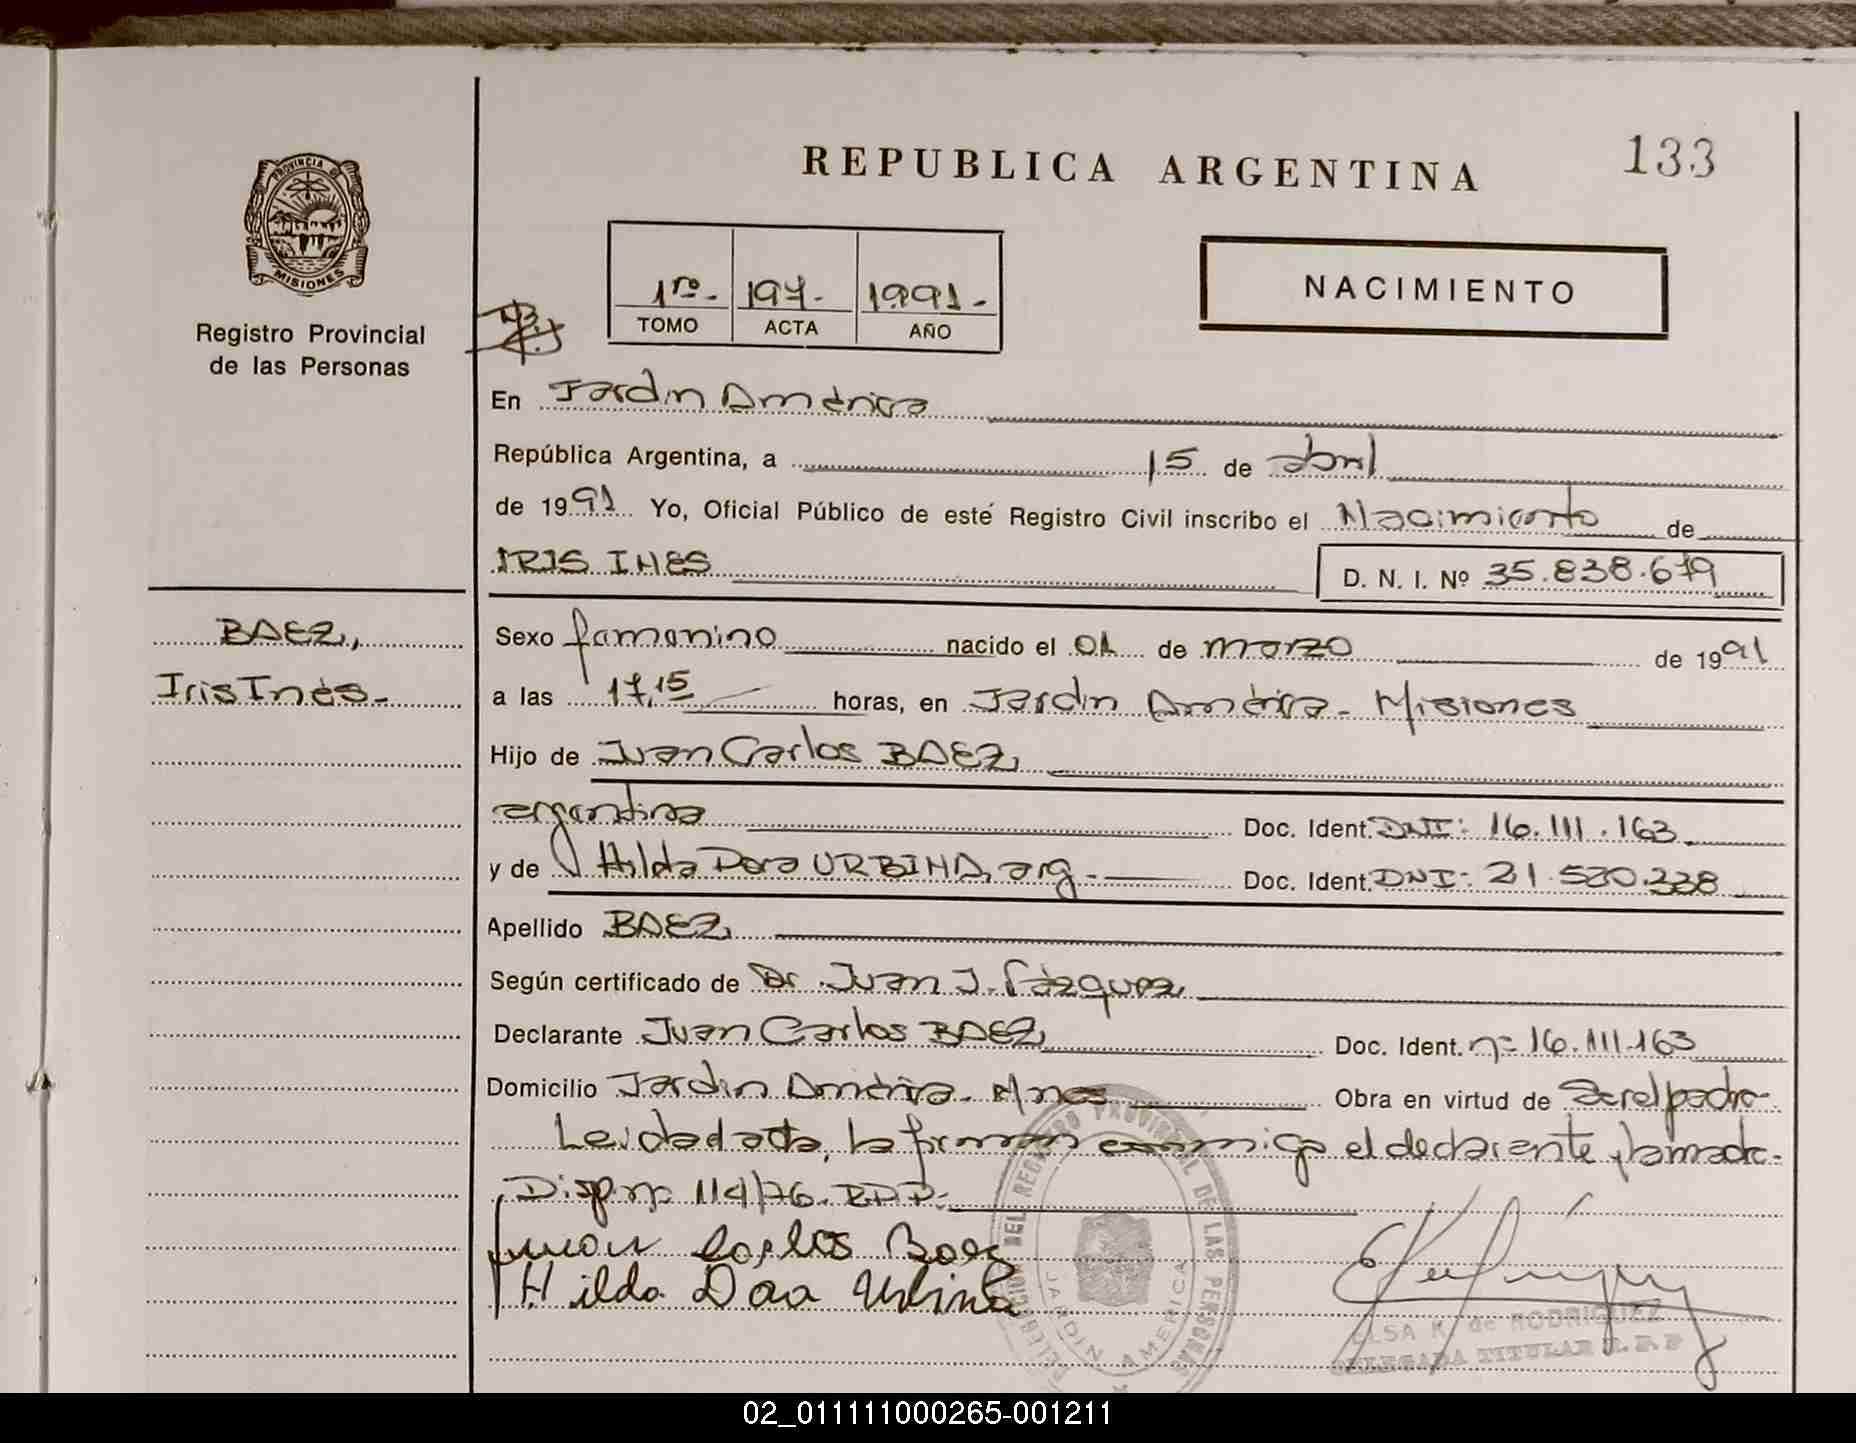 REPUBLICA ARGENTINA
133
PROVINCIA DE
MISIONES
Registro Provincial
de las Personas
1ro.- 197.- 1991.-
TOMO ACTA AÑO
NACIMIENTO
En Jardín América
República Argentina, a 15 de abril
de 1991 Yo, Oficial Público de este Registro Civil inscribo el Nacimiento de
IRIS INES D. N. I. Nº 35.838.679
BAEZ,
Iris Inés.-
Sexo femenino nacido el 01 de marzo de 1991
a las 17,15 horas, en Jardín América - Misiones
Hijo de Juan Carlos BAEZ,
argentina Doc. Ident. DNI: 16.111.163
y de Hilda Dora URBINA, arg.- Doc. Ident. DNI: 21.520.338
Apellido BAEZ,
Según certificado de Dr. Juan J. Vázquez,
Declarante Juan Carlos BAEZ, Doc. Ident. nº 16.111.163
Domicilio Jardín América - Mnes Obra en virtud de Ser el padre-
Leída el acta, la firman conmigo el declarante y la madre.-
Disp nº 114/76. RPP.-
Juan Carlos Baez
Hilda Dora Urbina
DEL REGISTRO PROVINCIAL DE LAS PERSONAS
JARDIN AMERICA
ELSA K. de RODRIGUEZ
DELEGADA TITULAR R.P.P
02_011111000265-001211